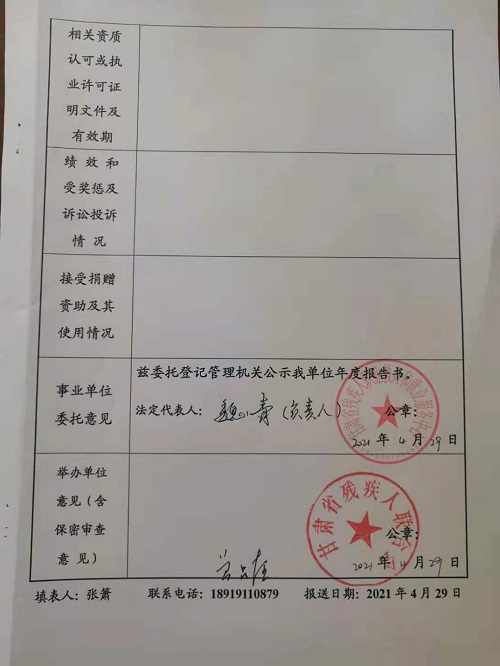 相关资质
认可或执
业许可证
明文件及
有效期
绩效和
受奖惩及
诉讼投诉
情况
接受捐赠
资助及其
使用情况
事业单位
委托意见
兹委托登记管理机关公示我单位年度报告书。
法定代表人：（负责人） 公章：
2021 年 4 月 29 日
举办单位
意见（含
保密审查
意见）
甘肃省残疾人联合会
公章：
2021 年 4 月 29 日
填表人：张箫 联系电话：18919110879 报送日期：2021 年 4 月 29 日